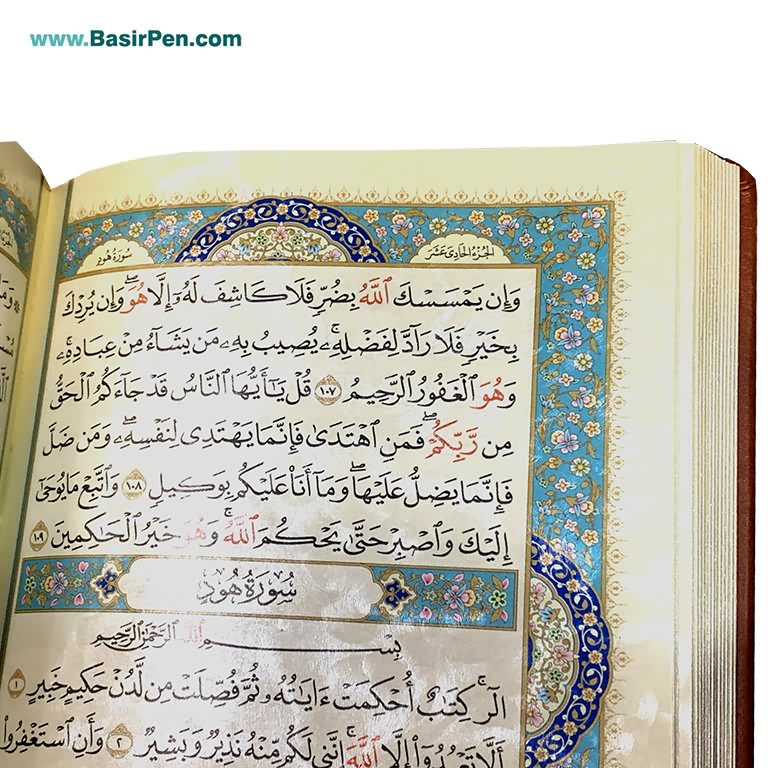 www.BasirPen.com
الجزء الحادي عشر
سورة هود
وَإِن يَمْسَسْكَ ٱللَّهُ بِضُرٍّ فَلَا كَاشِفَ لَهُۥٓ إِلَّا هُوَ ۖ وَإِن يُرِدْكَ
بِخَيْرٍ فَلَا رَآدَّ لِفَضْلِهِۦ ۚ يُصِيبُ بِهِۦ مَن يَشَآءُ مِنْ عِبَادِهِۦ ۚ
وَهُوَ ٱلْغَفُورُ ٱلرَّحِيمُ ١٠٧ قُلْ يَٰٓأَيُّهَا ٱلنَّاسُ قَدْ جَآءَكُمُ ٱلْحَقُّ
مِن رَّبِّكُمْ ۖ فَمَنِ ٱهْتَدَىٰ فَإِنَّمَا يَهْتَدِى لِنَفْسِهِۦ ۖ وَمَن ضَلَّ
فَإِنَّمَا يَضِلُّ عَلَيْهَا ۖ وَمَآ أَنَا۠ عَلَيْكُم بِوَكِيلٍ ١٠٨ وَٱتَّبِعْ مَا يُوحَىٰٓ
إِلَيْكَ وَٱصْبِرْ حَتَّىٰ يَحْكُمَ ٱللَّهُ ۚ وَهُوَ خَيْرُ ٱلْحَٰكِمِينَ ١٠٩
سُورَةُ هُودٍ
بِسْمِ ٱللَّهِ ٱلرَّحْمَٰنِ ٱلرَّحِيمِ
الٓر ۚ كِتَٰبٌ أُحْكِمَتْ ءَايَٰتُهُۥ ثُمَّ فُصِّلَتْ مِن لَّدُنْ حَكِيمٍ خَبِيرٍ ١
أَلَّا تَعْبُدُوٓا۟ إِلَّا ٱللَّهَ ۚ إِنَّنِى لَكُم مِّنْهُ نَذِيرٌ وَبَشِيرٌ ٢ وَأَنِ ٱسْتَغْفِرُوا۟